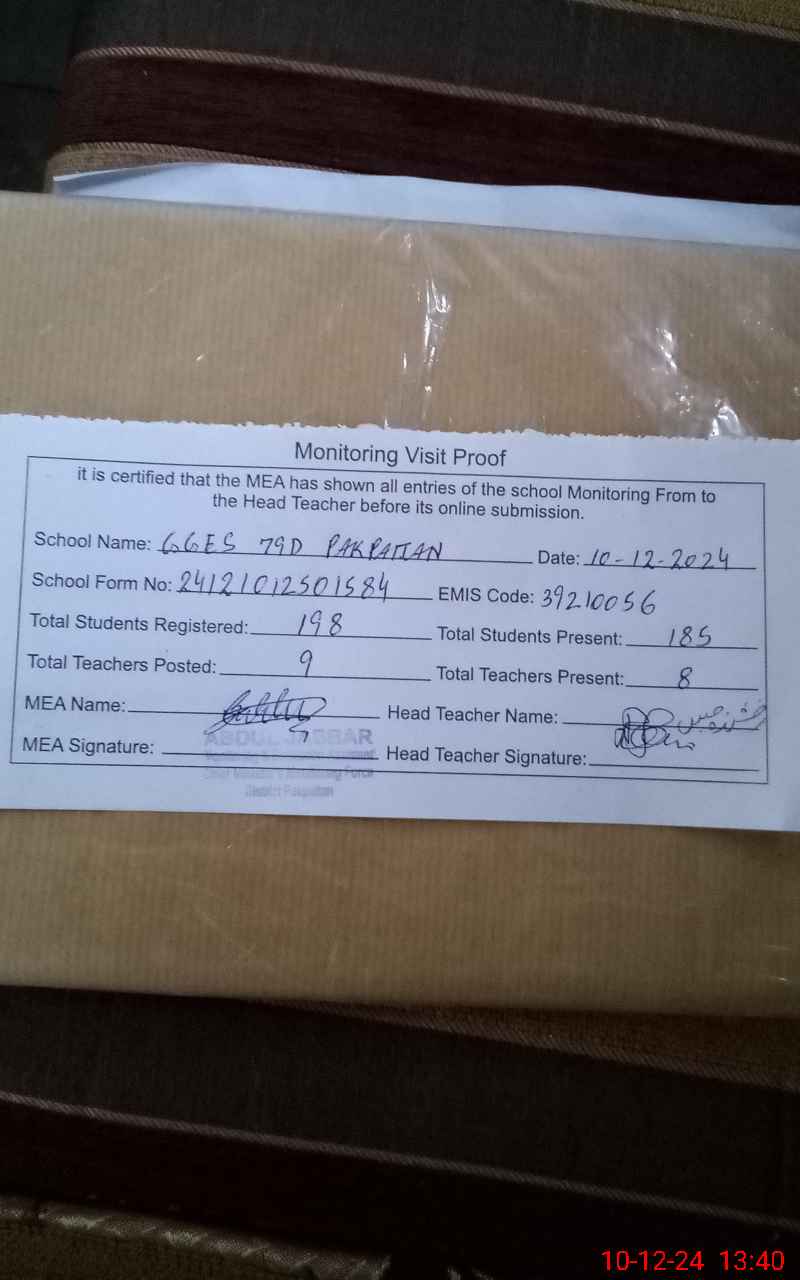 Monitoring Visit Proof
it is certified that the MEA has shown all entries of the school Monitoring From to
the Head Teacher before its online submission.
School Name: GGES 79D PAKPATTAN Date: 10-12-2024
School Form No: 24121012501584 EMIS Code: 39210056
Total Students Registered: 198 Total Students Present: 185
Total Teachers Posted: 9 Total Teachers Present: 8
MEA Name: Head Teacher Name:
ABDUL JABBAR
MEA Signature: Head Teacher Signature:
District Pakpattan
10-12-24 13:40